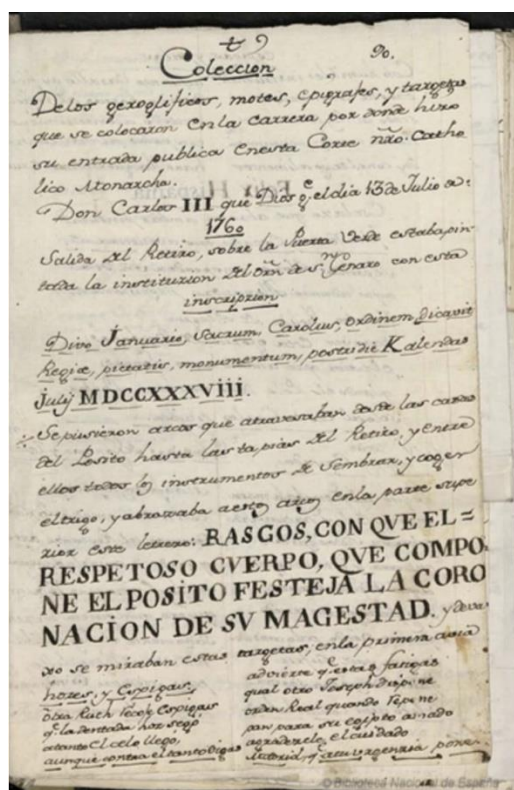 Coleccion
90.
De los geroglificos, motes, epigrafes, y targetas
que se colocaron en la carrera por donde hizo
su entrada publica en esta Corte nr̃o. Catho
lico Monarcha.
Don Carlos III que Dios g.e el dia 13 de Julio de
1760
Salida del Retiro, sobre la Puerta Verde estaba pin
tada la institucion del Orn̄ de Sn. Genaro con esta
inscripcion
Divo Januario, Sacrum, Carolus, Ordinem, dicavit
Regiæ, pietatis, monumentum, postridie Kalendas
julij MDCCXXXVIII.
Se pusieron arcos que atravesaban desde las casas
del Posito hasta las tapias del Retiro y entre
ellos todos los instrumentos de Sembrar, y coger
el trigo, y abrazaba a estos arcos en la parte supe
rior este letrero: RASGOS, CON QVE EL=
RESPETOSO CVERPO, QVE COMPO
NE EL POSITO FESTEJA LA CORO
NACION DE SV MAGESTAD. y deva
xo se miraban estas targetas, en la primera avia
hozes, y Espigas
otra Ruth recoje Espigas
q.e la dentada hoz segó
a tanto el celo llegó,
aunque contra el tanto
advierte q.e estas fatigas
qual otro Joseph
orden Real quando
pan para su
agradezele el cuidado
© Biblioteca Nacional de España